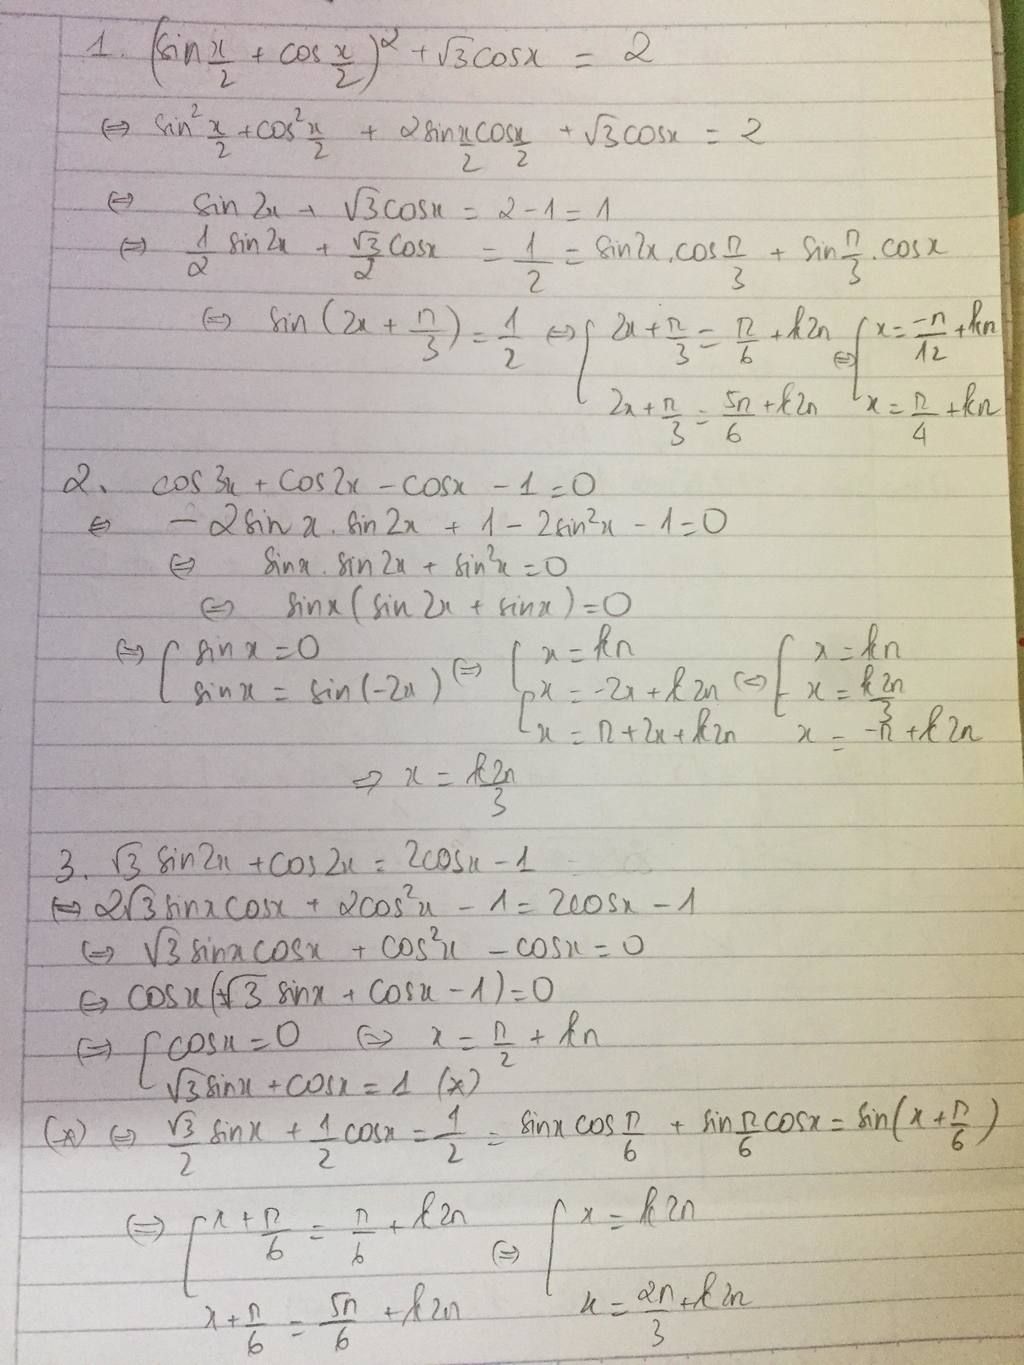 1. (sin x/2 + cos x/2)² + √3cosx = 2
⇔ sin² x/2 + cos² x/2 + 2sin x/2 cos x/2 + √3cosx = 2
⇔ sin2x + √3cosx = 2-1 = 1
⇔ 1/2 sin2x + √3/2 cosx = 1/2 = sin2x.cos π/3 + sin π/3 .cosx
⇔ sin(2x + π/3) = 1/2 ⇔ [ 2x + π/3 = π/6 + k2π ⇔ [ x = -π/12 + kπ
2x + π/3 = 5π/6 + k2π x = π/4 + kπ
2. cos3x + cos2x - cosx - 1 = 0
⇔ -2sinx.sin2x + 1 - 2sin²x - 1 = 0
⇔ sinx.sin2x + sin²x = 0
⇔ sinx(sin2x + sinx) = 0
⇔ [ sinx = 0 ⇔ [ x = kπ ⇔ [ x = kπ
sinx = sin(-2x) x = -2x + k2π x = k2π/3
x = π + 2x + k2π x = -π + k2π
⇒ x = k2π/3
3. √3 sin2x + cos2x = 2cosx - 1
⇔ 2√3sinxcosx + 2cos²x - 1 = 2cosx - 1
⇔ √3sinxcosx + cos²x - cosx = 0
⇔ cosx(√3 sinx + cosx - 1) = 0
⇔ [ cosx = 0 ⇔ x = π/2 + kπ
√3sinx + cosx = 1 (*)
(*) ⇔ √3/2 sinx + 1/2 cosx = 1/2 = sinxcos π/6 + sin π/6 cosx = sin(x + π/6)
⇔ [ x + π/6 = π/6 + k2π ⇔ [ x = k2π
x + π/6 = 5π/6 + k2π x = 2π/3 + k2π